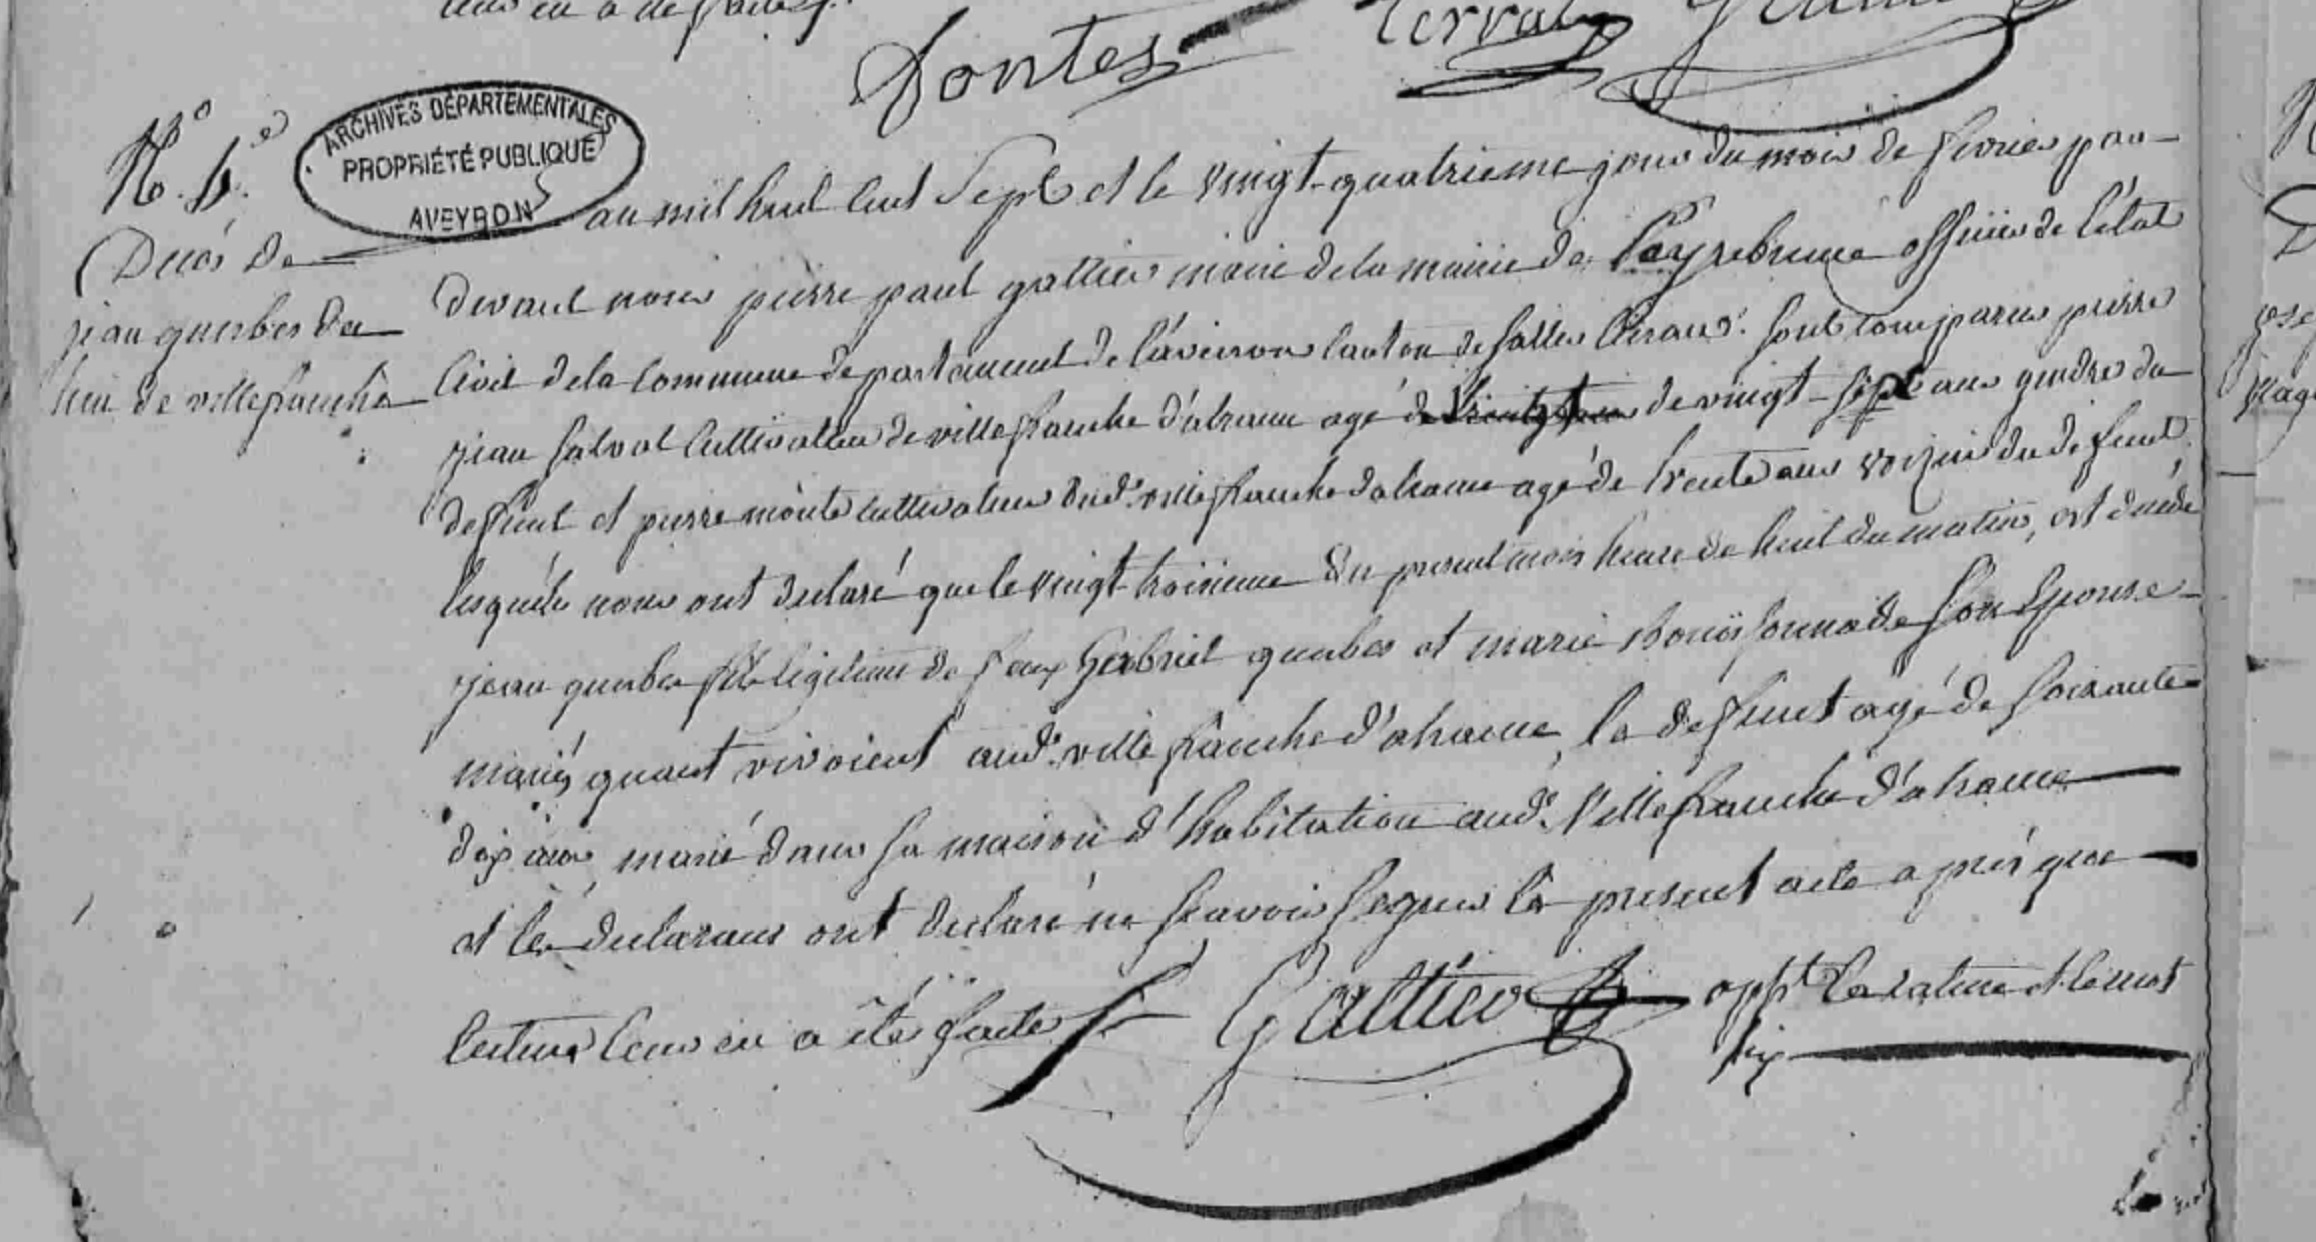 leur en a été faite
Fontes Cerval
ARCHIVES DÉPARTEMENTALES
PROPRIÉTÉ PUBLIQUE
AVEYRON
Décés de
jean querbes du
lieu de villefranche
au mil huit cent Sept et le vingt-quatrieme jour du mois de fevrier par-
devant nous pierre paul galtier maire de la mairie de Peyrebrune officier de l'état
Civil de la Commune departement de l'aveiron Canton de Salles Curans. sont comparus pierre
jean salvat Cultivateur de villefranche d'alraune agé de vingt-sept ans gendre du
defunt et pierre monte cultivateur dud. villefranche dalraune agé de trente ans voizin du defunt
lesquéls nous ont declaré que le vingt-troisieme du present mois heure de huit du matin, est décédé
jean querbes fils légitime de feux Gabriel querbes et marie Bouissounade son Epouse
mariés quant vivoient aud. villefranche d'alraune, le defunt agé de soixante
dix ans marié dans sa maison d'habitation aud. Villefranche d'alraune
et les declarans ont declaré ne scavoir signer le present acte aprés que
lecture leur en a été faite Galtier app.t la rature et le mot
six